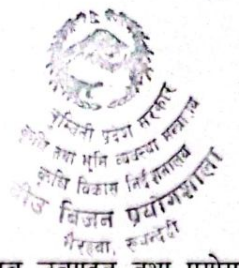 लुम्बिनी प्रदेश सरकार
कृषि तथा भूमि व्यवस्था मन्त्रालय
कृषि विकास निर्देशनालय
बीउ बिजन प्रयोगशाला
भैरहवा, रुपन्देही
तथा